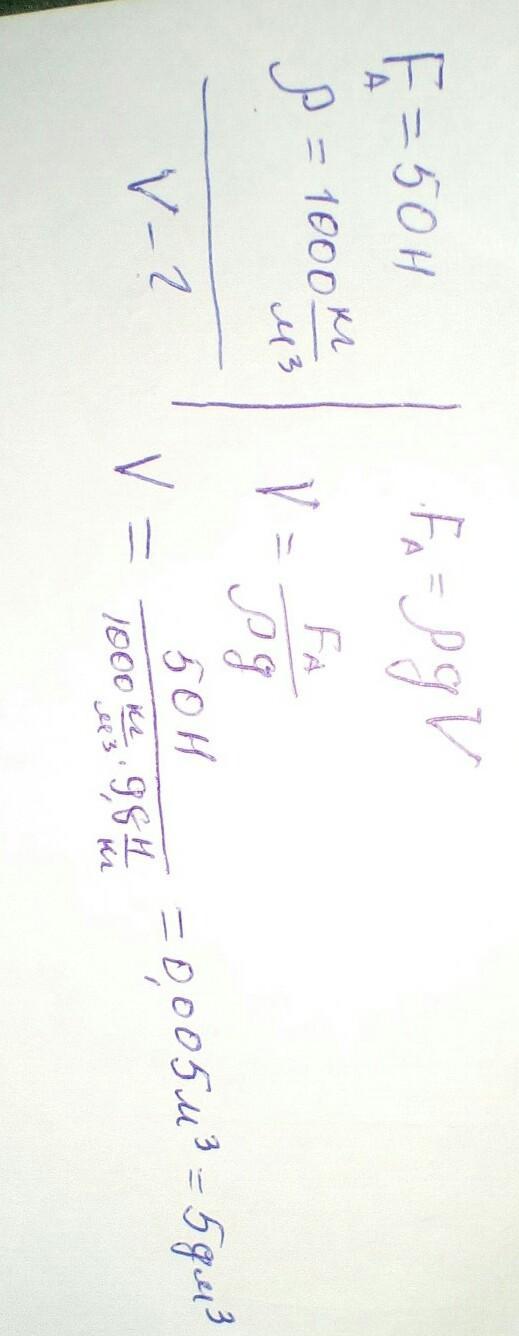 F_A = 50 Н
ρ = 1000 кг/м³
V – ?
F_A = ρgV
V = F_A/ρg
V = 50 Н/(1000 кг/м³ · 9,8 Н/кг) = 0,005 м³ = 5 дм³